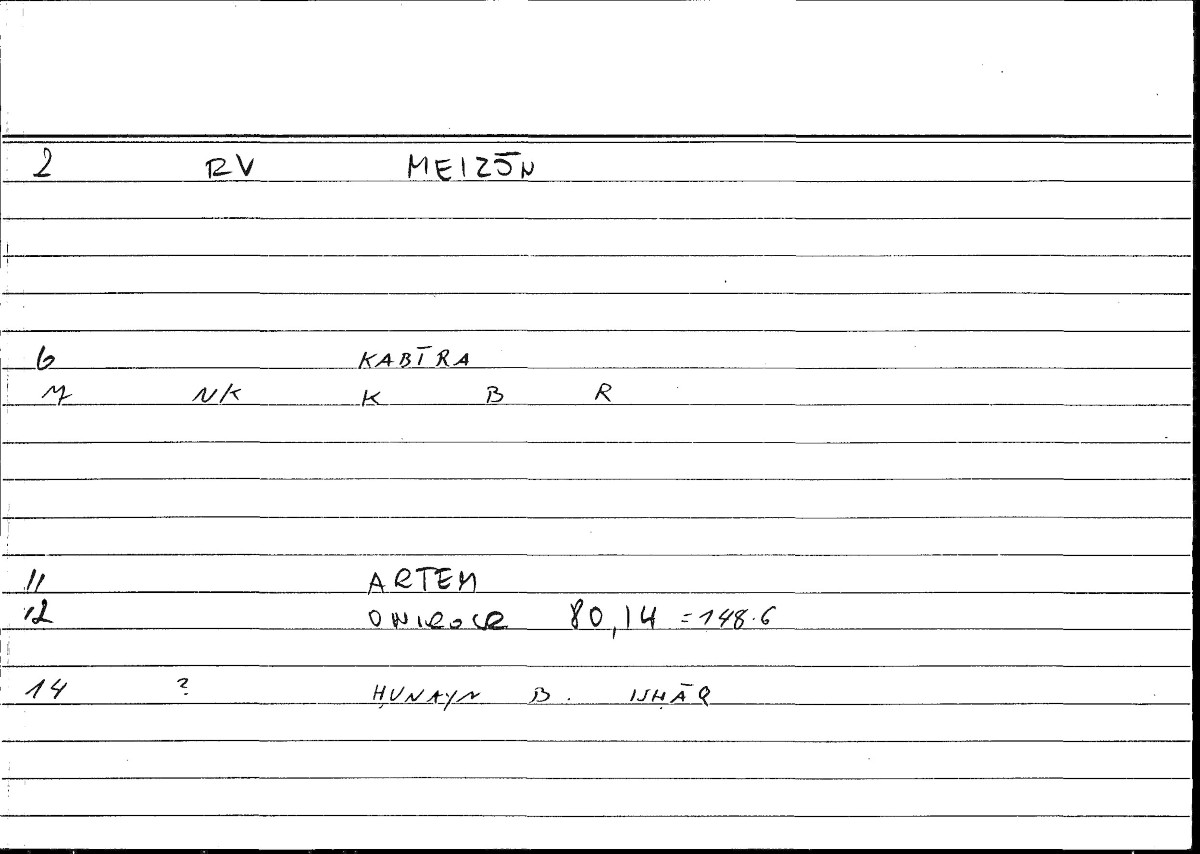 2 RV MEIZŌN
6 KABĪRA
7 NK K B R
11 ARTEM
12 ONIROCR 80,14 =148.6
14 ? ḤUNAYN B. ISḤĀQ